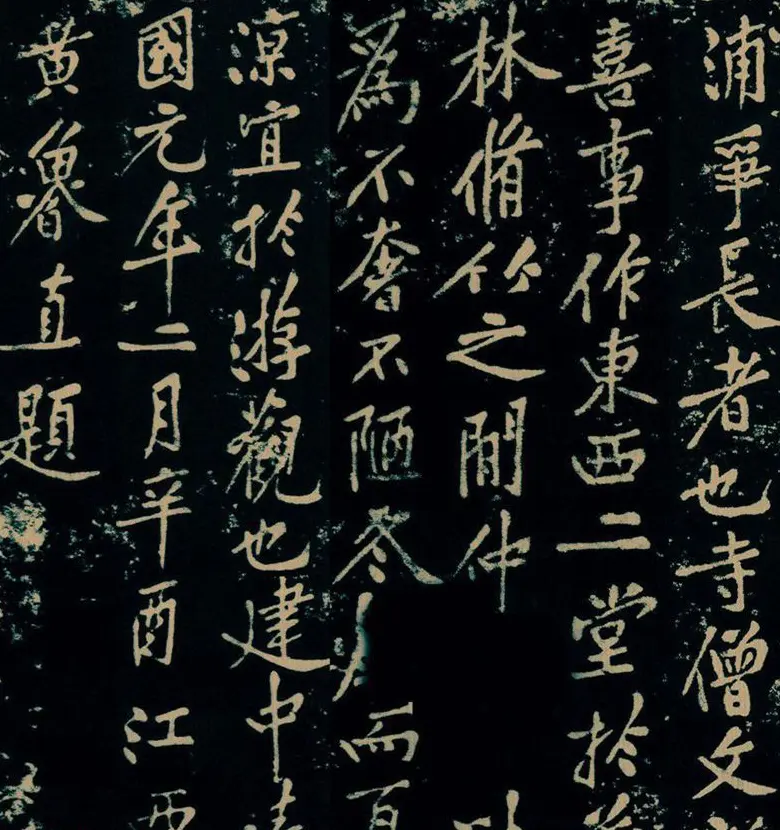 浦爭長者也寺僧文
喜事作東西二堂於
林脩竹之間仲
爲不奢不陋冬而
涼宜於游觀也建中
國元年二月辛酉江西
黄魯直題